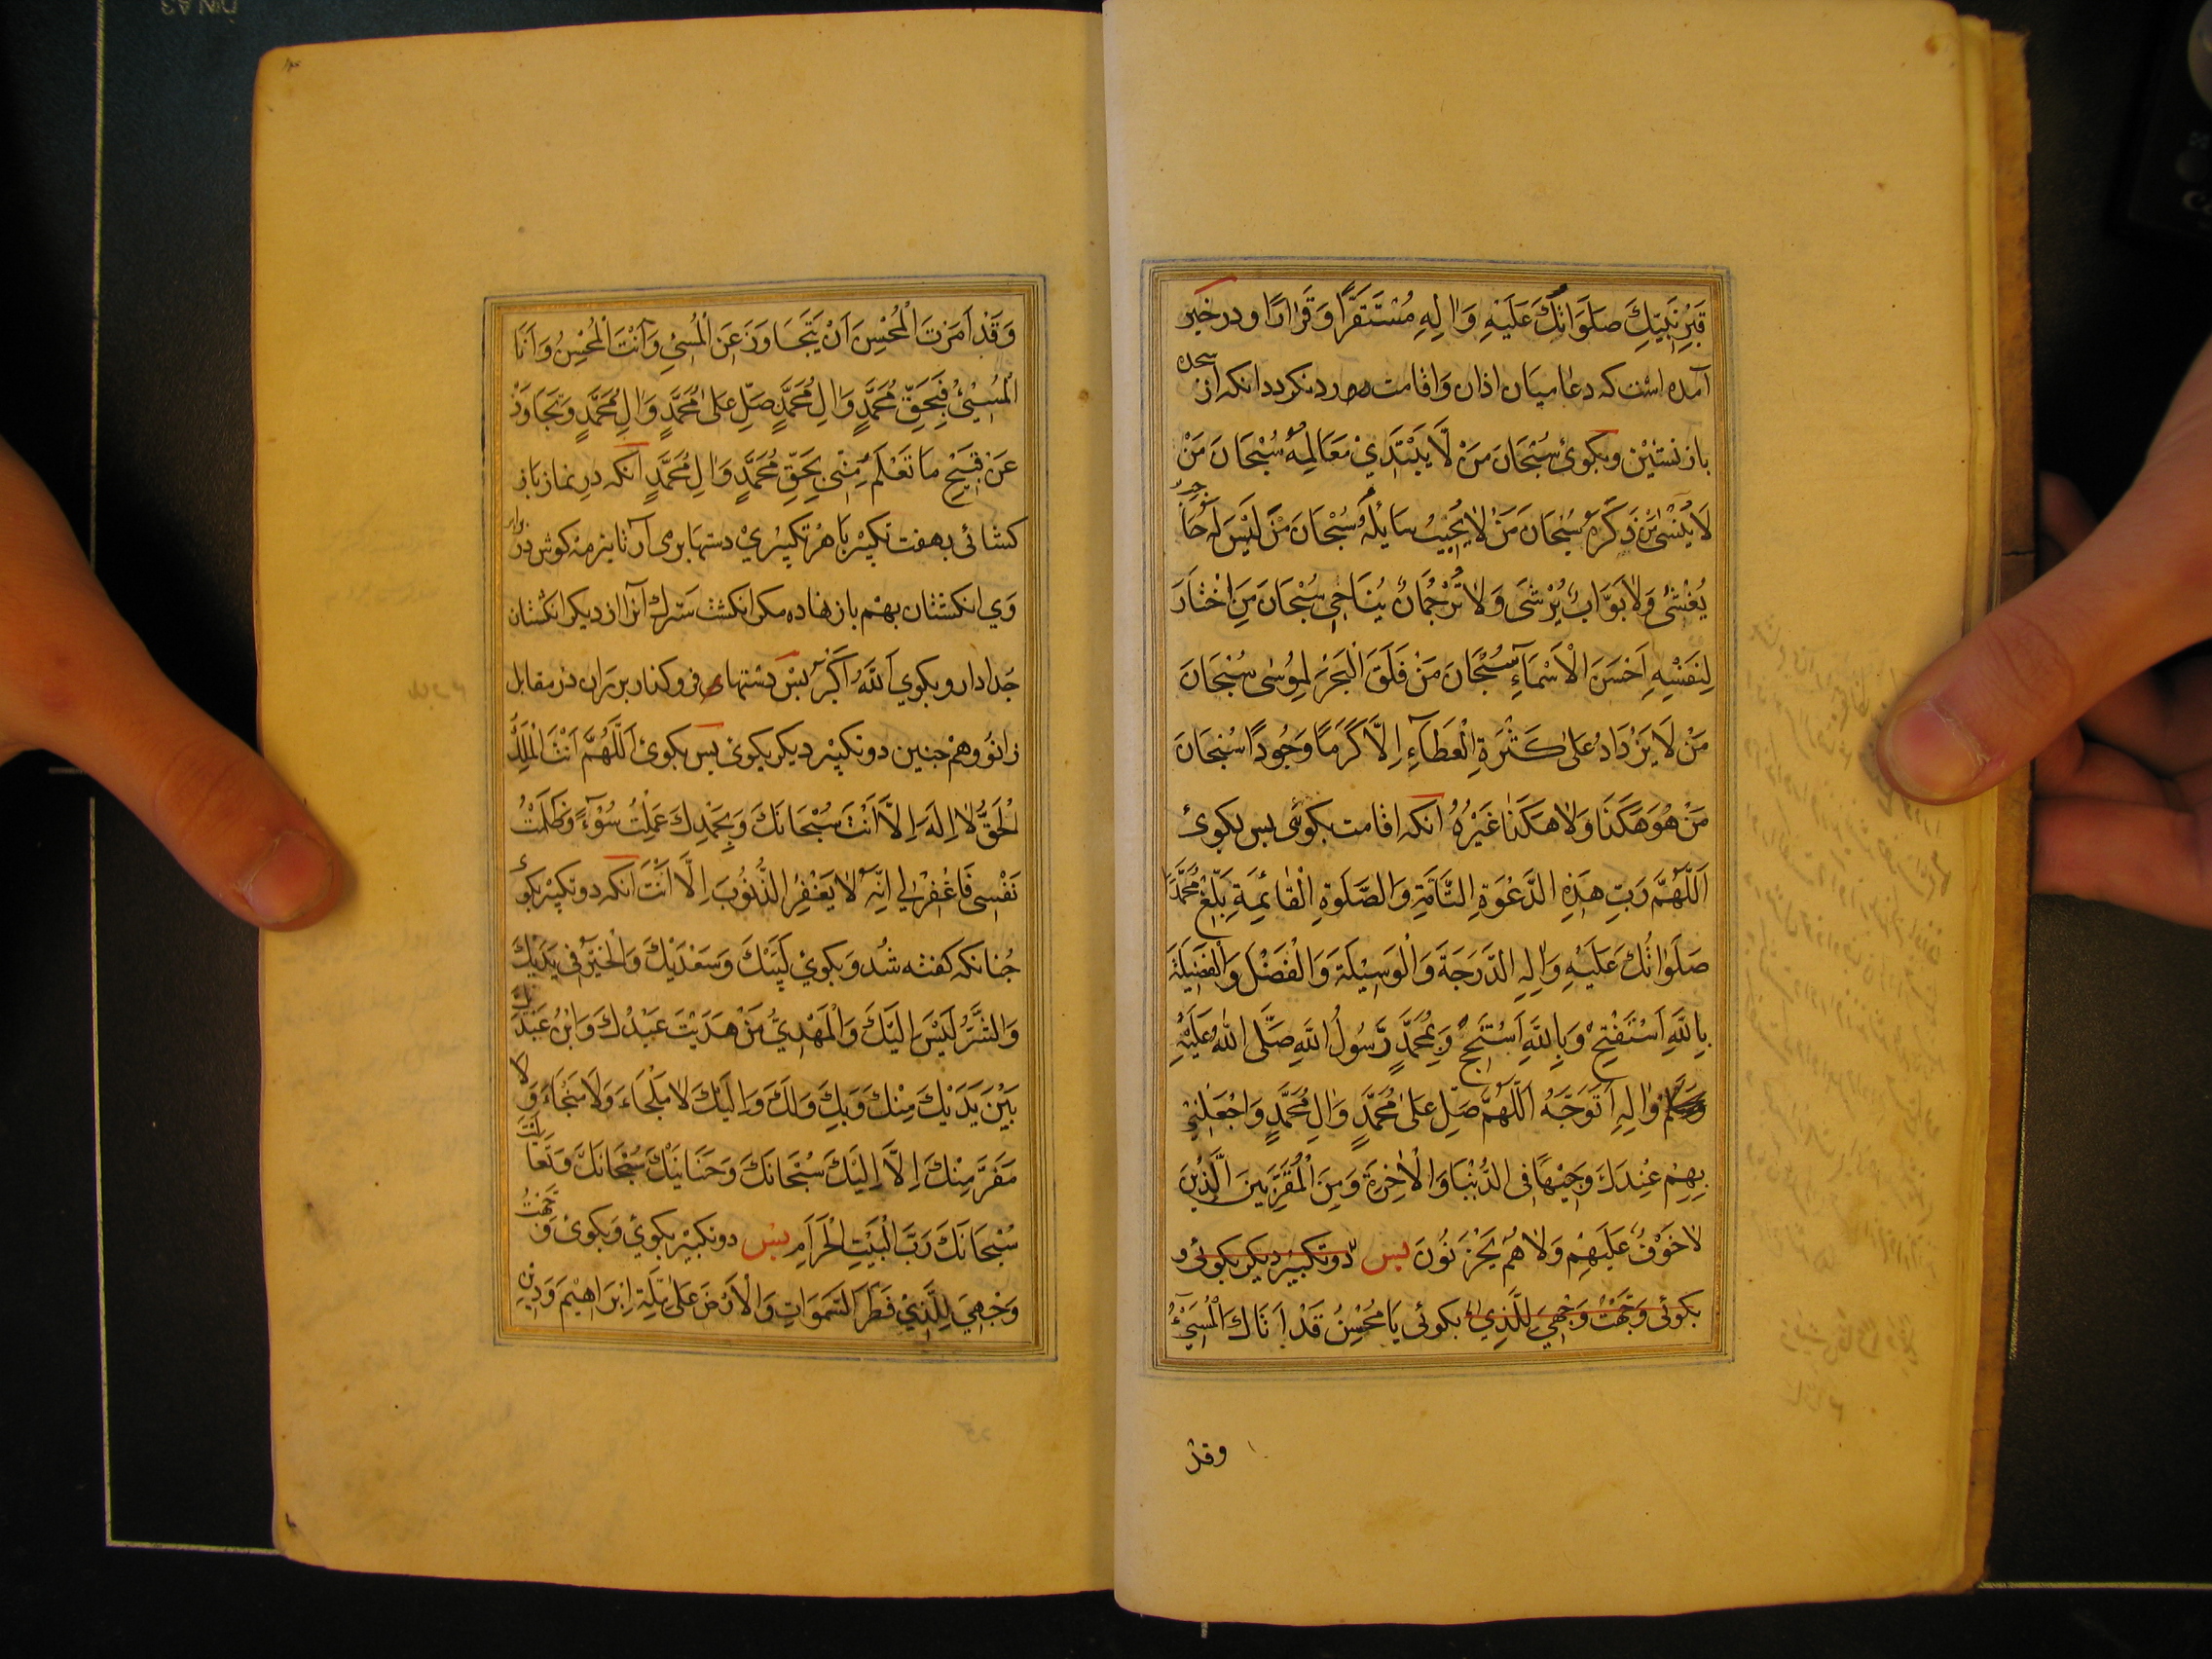 قَبْرِ نَبِيِّكَ صَلَوَاتُكَ عَلَيْهِ وَاٰلِهِ مُسْتَقَرًّا وَقَرَارًا و در خبر
آمده است که دعا میان اذان و اقامت رد نکردد انکه از سجده
باز نشین و بکوی سُبْحَانَ مَنْ لَا يَبْتَدِي مَعَالِمُهُ سُبْحَانَ مَنْ
لَا يَنْسٰى مَنْ ذَكَرَهُ سُبْحَانَ مَنْ لَا يُخِيبُ سَايِلَهُ سُبْحَانَ مَنْ لَيْسَ لَهُ حَاجِبٌ
يُغْشٰى وَلَا بَوَّابٌ يُرْشٰى وَلَا تَرْجُمَانٌ يُنَاجٰى سُبْحَانَ مَنِ اخْتَارَ
لِنَفْسِهِ اَحْسَنَ الْاَسْمَآءِ سُبْحَانَ مَنْ فَلَقَ الْبَحْرَ لِمُوسٰى سُبْحَانَ
مَنْ لَا يَزْدَادُ عَلٰى كَثْرَةِ الْعَطَآءِ اِلَّا كَرَمًا وَجُودًا سُبْحَانَ
مَنْ هُوَ هٰكَذَا وَلَا هٰكَذَا غَيْرُهُ انکه اقامت بکوئی بس بکوئ
اَللّٰهُمَّ رَبَّ هٰذِهِ الدَّعْوَةِ التَّامَّةِ وَالصَّلٰوةِ الْقَائِمَةِ بَلِّغْ مُحَمَّدًا
صَلَوَاتُكَ عَلَيْهِ وَاٰلِهِ الدَّرَجَةَ وَالْوَسِيلَةَ وَالْفَضْلَ وَالْفَضِيلَةَ
بِاللّٰهِ اَسْتَفْتِحُ وَبِاللّٰهِ اَسْتَنْجِحُ وَبِمُحَمَّدٍ رَّسُولُ اللّٰهِ صَلَّى اللّٰهُ عَلَيْهِ
وَاٰلِهِ اَتَوَجَّهُ اَللّٰهُمَّ صَلِّ عَلٰى مُحَمَّدٍ وَاٰلِ مُحَمَّدٍ وَاجْعَلْنِي
بِهِمْ عِنْدَكَ وَجِيْهًا فِى الدُّنْيَا وَالْاٰخِرَةِ وَمِنَ الْمُقَرَّبِينَ الَّذِينَ
لَا خَوْفٌ عَلَيْهِمْ وَلَا هُمْ يَحْزَنُونَ بس دو تکبیر دیکر بکوئی و
بکوئی وَجَّهْتُ وَجْهِيَ لِلَّذِي بکوئی يَا مُحْسِنُ قَدْ اَتَاكَ الْمُسِيْءُ
وقد
وَقَدْ اَمَرْتَ الْمُحْسِنَ اَنْ يَتَجَاوَزَ عَنِ الْمُسِيْءِ وَاَنْتَ الْمُحْسِنُ وَاَنَا
الْمُسِيْءُ فَبِحَقِّ مُحَمَّدٍ وَاٰلِ مُحَمَّدٍ صَلِّ عَلٰى مُحَمَّدٍ وَاٰلِ مُحَمَّدٍ وَتَجَاوَزْ
عَنْ قَبِيْحِ مَا تَعْلَمُ مِنِّي بِحَقِّ مُحَمَّدٍ وَاٰلِ مُحَمَّدٍ انکه در نماز باز
کشائی بهفت تکبیر با هر تکبیری دستها برمی آر تا بنرمه کوش در برابر
وی انکشتان بهم باز نهاده مکر انکشت سترك آنرا از دیکر انکشتان
جدا دار و بکوی اَللّٰهُ اَكْبَرُ بس دستهای فرو کذار بر ران در مقابل
زانو و هم چنین دو تکبیر دیکر بکوی بس بکوئ اَللّٰهُمَّ اَنْتَ الْمَلِكُ
الْحَقُّ لَا اِلٰهَ اِلَّا اَنْتَ سُبْحَانَكَ وَبِحَمْدِكَ عَمِلْتُ سُوْءًا وَظَلَمْتُ
نَفْسِى فَاغْفِرْ لِي اِنَّهُ لَا يَغْفِرُ الذُّنُوبَ اِلَّا اَنْتَ انکه دو تکبیر بکوئ
چنانکه کفته شد و بکوی لَبَّيْكَ وَسَعْدَيْكَ وَالْخَيْرُ فِى يَدَيْكَ
وَالشَّرُّ لَيْسَ اِلَيْكَ وَالْمَهْدِيُّ مَنْ هَدَيْتَ عَبْدُكَ وَابْنُ عَبْدَيْكَ
بَيْنَ يَدَيْكَ مِنْكَ وَبِكَ وَلَكَ وَاِلَيْكَ لَا مَلْجَاءَ وَلَا مَنْجَاءَ وَلَا
مَفَرَّ مِنْكَ اِلَّا اِلَيْكَ سُبْحَانَكَ وَحَنَانَيْكَ سُبْحَانَكَ وَتَعَالَيْتَ
سُبْحَانَكَ رَبَّ الْبَيْتِ الْحَرَامِ بس دو تکبیر بکوئ و بکوئ وَجَّهْتُ
وَجْهِيَ لِلَّذِيْ فَطَرَ السَّمٰوَاتِ وَالْاَرْضَ عَلٰى مِلَّةِ اِبْرَاهِيْمَ وَدِيْنِ